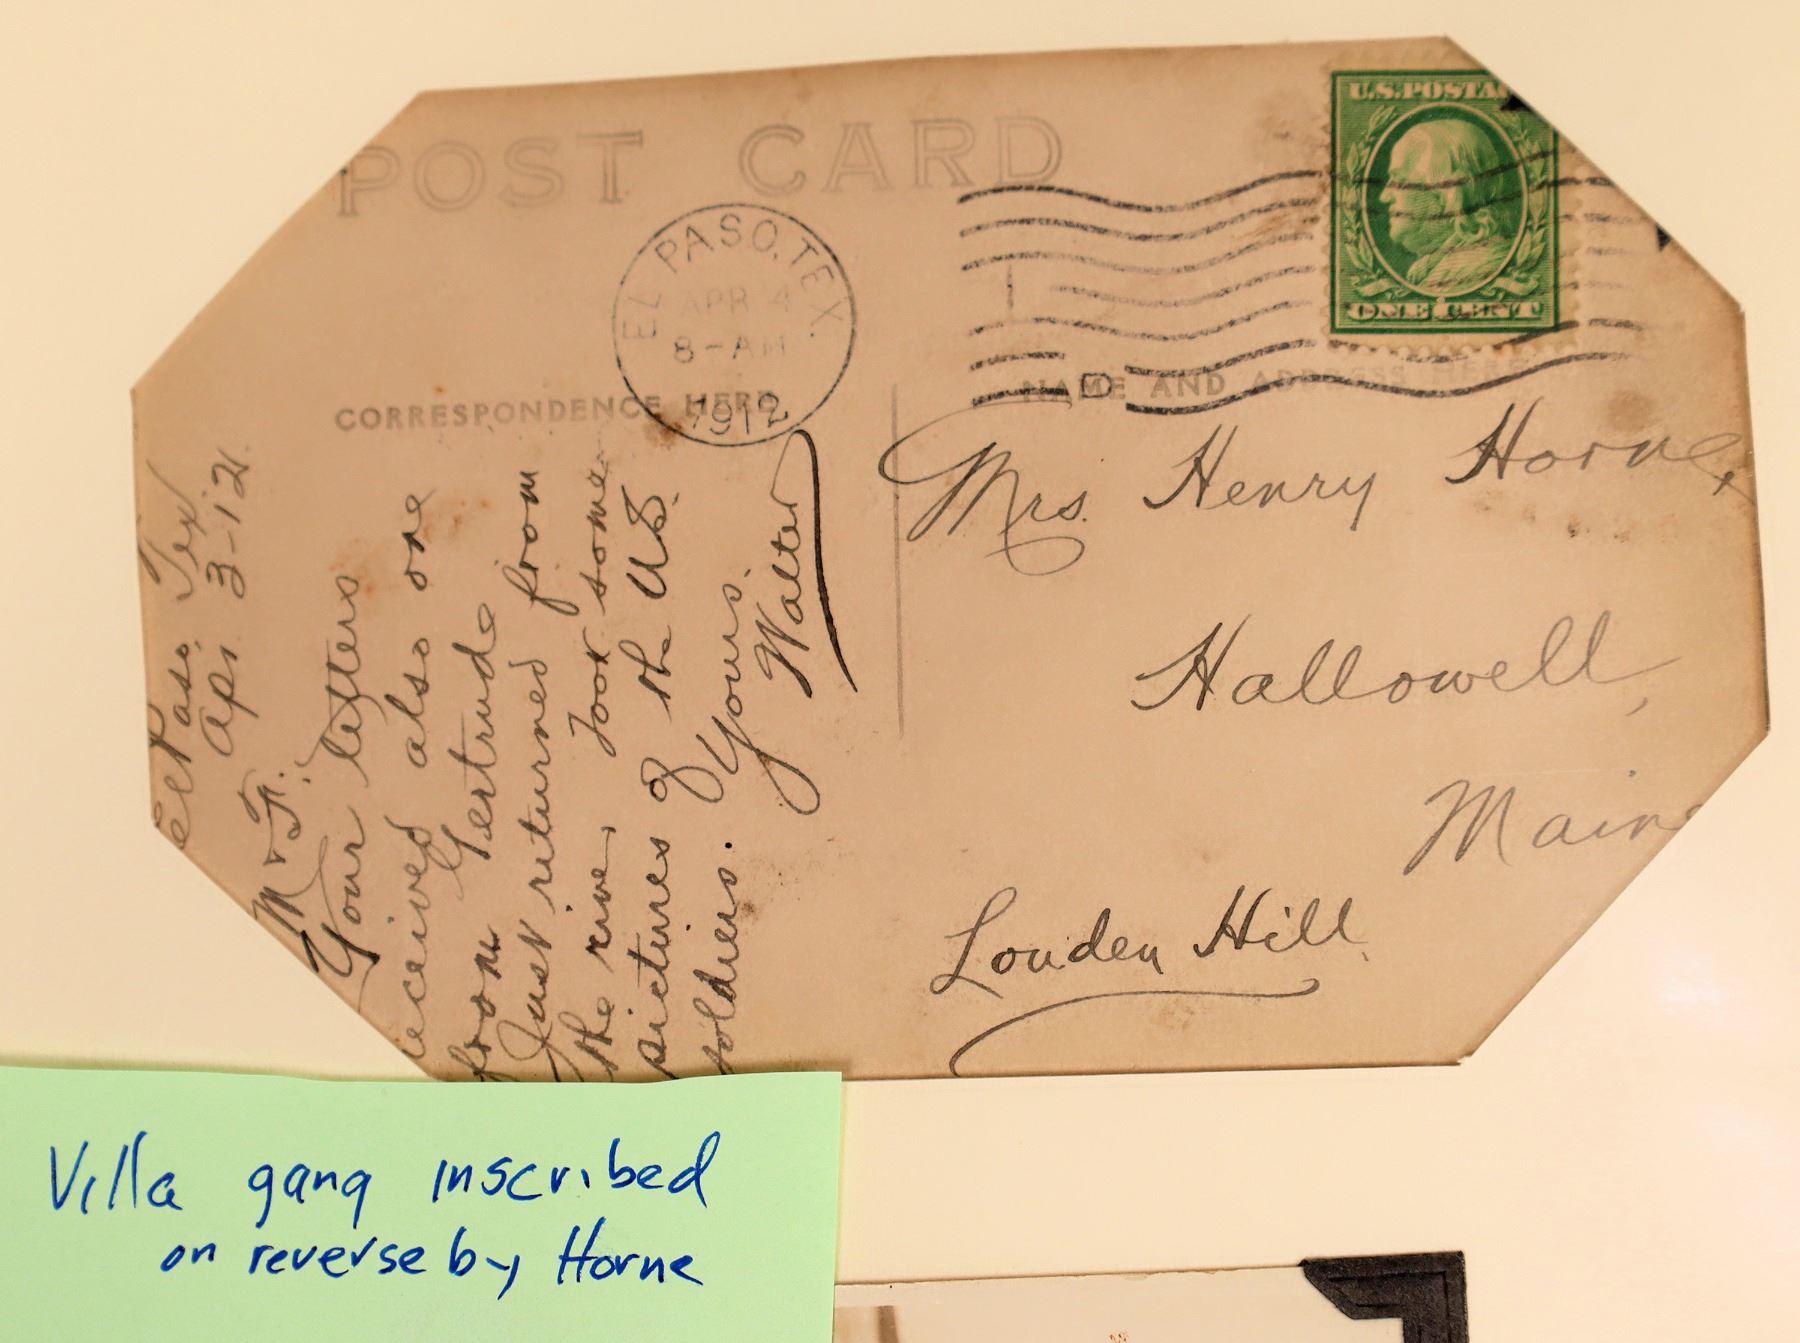 POST CARD
U.S. POSTA
ONE CENT
EL PASO, TEX.
APR 4
8-AM
1912
D
CORRESPONDENCE HERE
NAME AND ADDRESS HERE
El Paso Tex
Apr. 3-12.
M & F.
Your letters
received also one
from Gertrude
Just returned from
the river, Took some
pictures of the U.S.
soldiers. Yours.
Walter
Mrs. Henry Horne,
Hallowell,
Maine
Louden Hill.
Villa gang inscribed
on reverse by Horne